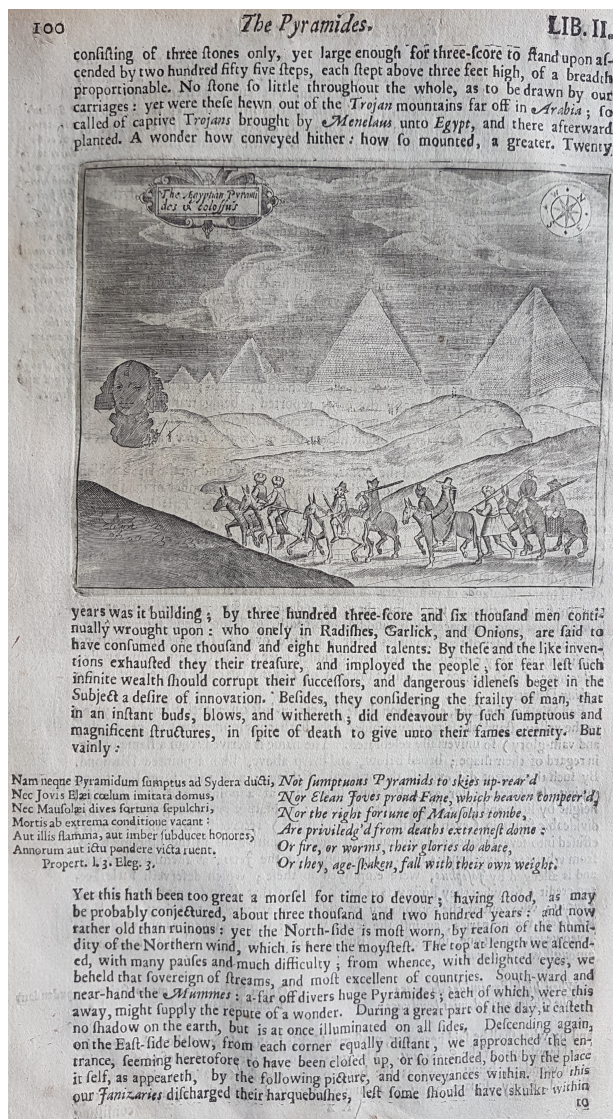 100 The Pyramides. LIB. II.
conſiſting of three ſtones only, yet large enough for three-ſcore to ſtand upon aſ-
cended by two hundred fifty five ſteps, each ſtept above three feet high, of a breadth
proportionable. No ſtone ſo little throughout the whole, as to be drawn by our
carriages: yet were theſe hewn out of the Trojan mountains far off in Arabia; ſo
called of captive Trojans brought by Menelaus unto Egypt, and there afterward
planted. A wonder how conveyed hither: how ſo mounted, a greater. Twenty
The Ægyptian Pyrami
des & Coloſſus
years was it building; by three hundred three-ſcore and ſix thouſand men conti-
nually wrought upon: who onely in Radiſhes, Garlick, and Onions, are ſaid to
have conſumed one thouſand and eight hundred talents. By theſe and the like inven-
tions exhauſted they their treaſure, and imployed the people; for fear leſt ſuch
infinite wealth ſhould corrupt their ſucceſſors, and dangerous idleneſs beget in the
Subject a deſire of innovation. Beſides, they conſidering the frailty of man, that
in an inſtant buds, blows, and withereth; did endeavour by ſuch ſumptuous and
magnificent ſtructures, in ſpite of death to give unto their fames eternity. But
vainly:
Nam neque Pyramidum ſumptus ad Sydera ducti,
Nec Jovis Elæi cœlum imitata domus,
Nec Mauſolæi dives fortuna ſepulchri,
Mortis ab extrema conditione vacant:
Aut illis flamma, aut imber ſubducet honores,
Annorum aut ictu pondere victa ruent.
Propert. l. 3. Eleg. 3.
Not ſumptuous Pyramids to skies up-rear'd
Nor Elean Joves proud Fane, which heaven compeer'd,
Nor the right fortune of Mauſolus tombe,
Are priviledg'd from deaths extremeſt dome:
Or fire, or worms, their glories do abate,
Or they, age-ſhaken, fall with their own weight.
Yet this hath been too great a morſel for time to devour; having ſtood, as may
be probably conjectured, about three thouſand and two hundred years: and now
rather old than ruinous: yet the North-ſide is moſt worn, by reaſon of the humi-
dity of the Northern wind, which is here the moyſteſt. The top at length we aſcend-
ed, with many pauſes and much difficulty; from whence, with delighted eyes, we
beheld that ſovereign of ſtreams, and moſt excellent of countries. South-ward and
near-hand the Mummes: a-far off divers huge Pyramides; each of which, were this
away, might ſupply the repute of a wonder. During a great part of the day, it caſteth
no ſhadow on the earth, but is at once illuminated on all ſides. Deſcending again,
on the Eaſt-ſide below, from each corner equally diſtant, we approached the en-
trance, ſeeming heretofore to have been cloſed up, or ſo intended, both by the place
it ſelf, as appeareth, by the following picture, and conveyances within. Into this
our Janizaries diſcharged their harquebuſhes, leſt ſome ſhould have skulkt within
to